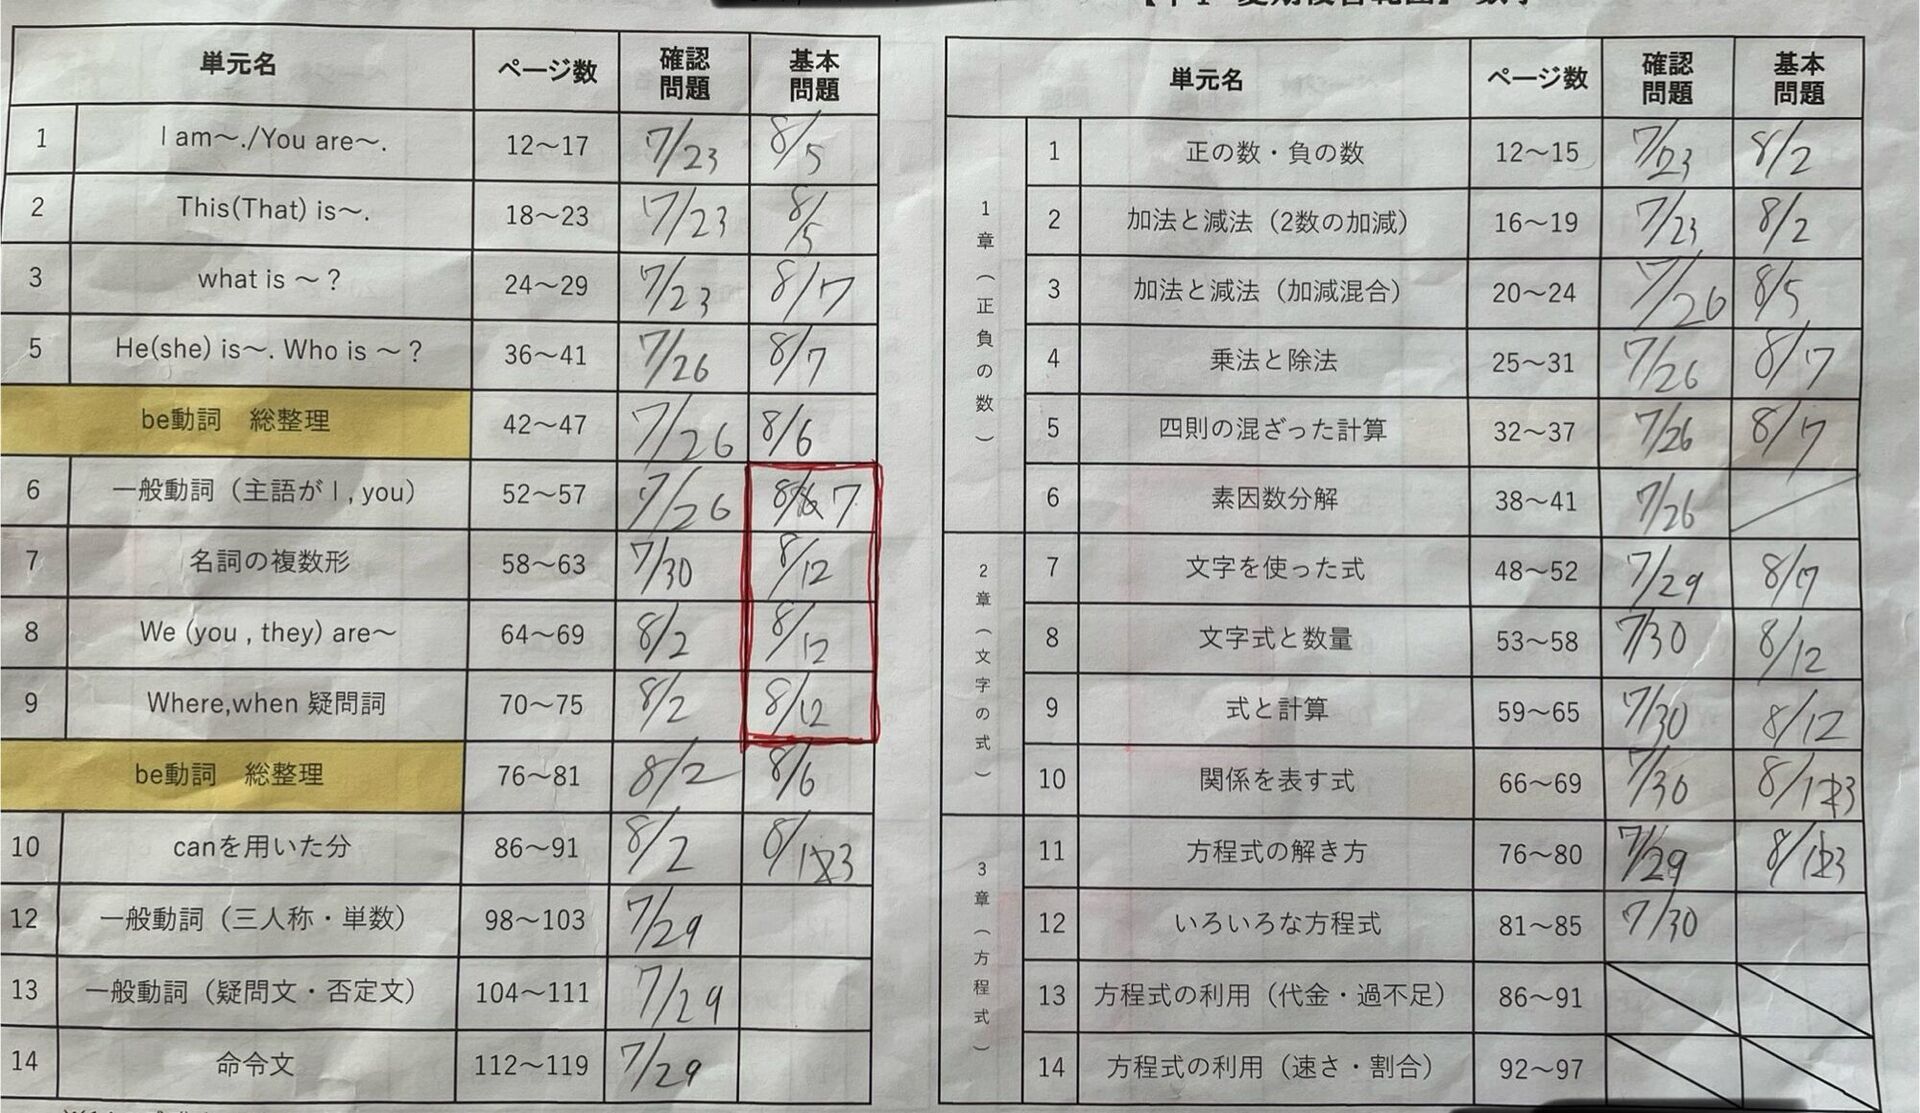 単元名 ページ数 確認問題 基本問題
1 I am～./You are～. 12～17 7/23 8/5
2 This(That) is～. 18～23 7/23 8/5
3 what is ～？ 24～29 7/23 8/7
5 He(she) is～. Who is ～？ 36～41 7/26 8/7
be動詞　総整理 42～47 7/26 8/6
6 一般動詞（主語がI , you） 52～57 7/26 8/7
7 名詞の複数形 58～63 7/30 8/12
8 We (you , they) are～ 64～69 8/2 8/12
9 Where,when 疑問詞 70～75 8/2 8/12
be動詞　総整理 76～81 8/2 8/6
10 canを用いた分 86～91 8/2 8/13
12 一般動詞（三人称・単数） 98～103 7/29
13 一般動詞（疑問文・否定文） 104～111 7/29
14 命令文 112～119 7/29
単元名 ページ数 確認問題 基本問題
1章（正負の数）
1 正の数・負の数 12～15 7/23 8/2
2 加法と減法（2数の加減） 16～19 7/23 8/2
3 加法と減法（加減混合） 20～24 7/26 8/5
4 乗法と除法 25～31 7/26 8/7
5 四則の混ざった計算 32～37 7/26 8/7
6 素因数分解 38～41 7/26
2章（文字の式）
7 文字を使った式 48～52 7/29 8/7
8 文字式と数量 53～58 7/30 8/12
9 式と計算 59～65 7/30 8/12
10 関係を表す式 66～69 7/30 8/13
3章（方程式）
11 方程式の解き方 76～80 7/29 8/13
12 いろいろな方程式 81～85 7/30
13 方程式の利用（代金・過不足） 86～91
14 方程式の利用（速さ・割合） 92～97